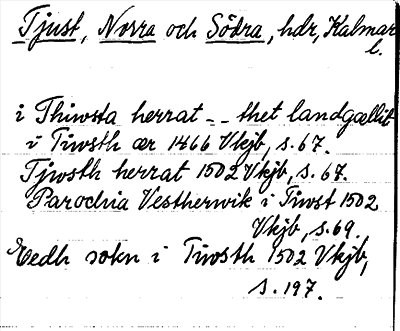 Tjust, Norra och Södra, hdr, Kalmar
l.
i Thiwsta herrat -- thet landgællit
i Tiwsth ær 1466 Vkjb, s. 67.
Tjwsth herrat 1502 Vkjb, s. 67.
Parochia Vestherwik i Tiwst 1502
Vkjb, s. 69.
Eedh sokn i Tiwsth 1502 Vkjb,
s. 197.